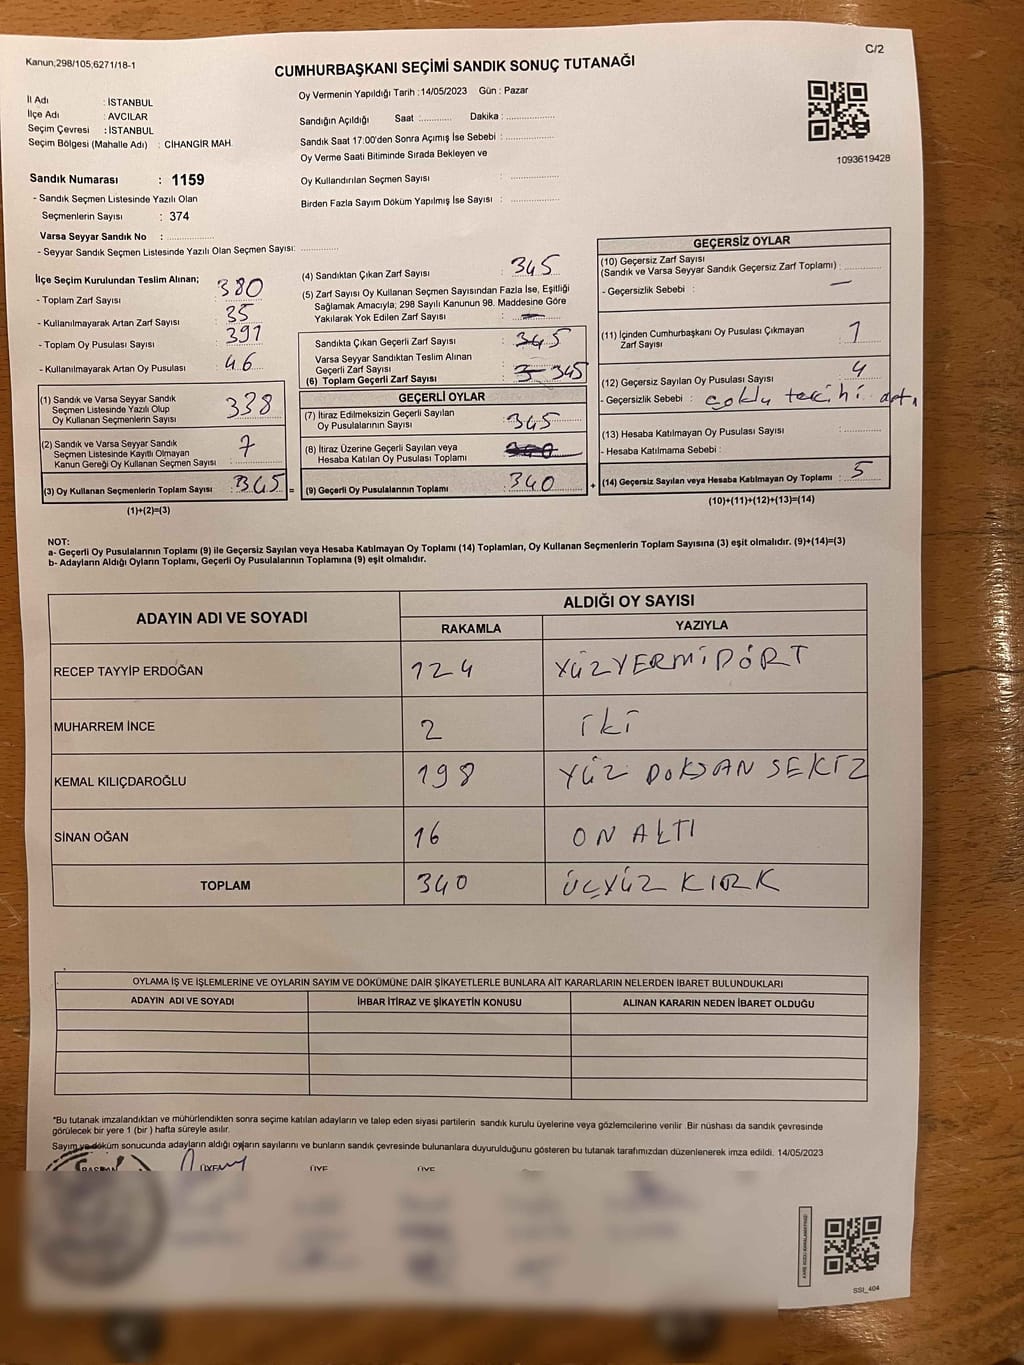 Kanun;298/105,6271/18-1
C/2
CUMHURBAŞKANI SEÇİMİ SANDIK SONUÇ TUTANAĞI
İl Adı : İSTANBUL
İlçe Adı : AVCILAR
Seçim Çevresi : İSTANBUL
Seçim Bölgesi (Mahalle Adı) : CİHANGİR MAH.
Oy Vermenin Yapıldığı Tarih : 14/05/2023 Gün : Pazar
Sandığın Açıldığı Saat :........... Dakika :.................
Sandık Saat 17:00'den Sonra Açımış İse Sebebi :................
Oy Verme Saati Bitiminde Sırada Bekleyen ve
Oy Kullandırılan Seçmen Sayısı :................
Birden Fazla Sayım Döküm Yapılmış İse Sayısı :................
1093619428
Sandık Numarası : 1159
- Sandık Seçmen Listesinde Yazılı Olan
Seçmenlerin Sayısı : 374
Varsa Seyyar Sandık No :................
- Seyyar Sandık Seçmen Listesinde Yazılı Olan Seçmen Sayısı:.............
İlçe Seçim Kurulundan Teslim Alınan;
- Toplam Zarf Sayısı : 380
- Kullanılmayarak Artan Zarf Sayısı : 35
- Toplam Oy Pusulası Sayısı : 391
- Kullanılmayarak Artan Oy Pusulası : 46
(1) Sandık ve Varsa Seyyar Sandık
Seçmen Listesinde Yazılı Olup
Oy Kullanan Seçmenlerin Sayısı : 338
(2) Sandık ve Varsa Seyyar Sandık
Seçmen Listesinde Kayıtlı Olmayan
Kanun Gereği Oy Kullanan Seçmen Sayısı : 7
(3) Oy Kullanan Seçmenlerin Toplam Sayısı : 345 =
(1)+(2)=(3)
(4) Sandıktan Çıkan Zarf Sayısı : 345
(5) Zarf Sayısı Oy Kullanan Seçmen Sayısından Fazla İse, Eşitliği
Sağlamak Amacıyla; 298 Sayılı Kanunun 98. Maddesine Göre
Yakılarak Yok Edilen Zarf Sayısı : —
Sandıkta Çıkan Geçerli Zarf Sayısı : 345
Varsa Seyyar Sandıktan Teslim Alınan
Geçerli Zarf Sayısı :
(6) Toplam Geçerli Zarf Sayısı : 345
GEÇERLİ OYLAR
(7) İtiraz Edilmeksizin Geçerli Sayılan
Oy Pusulalarının Sayısı : 345
(8) İtiraz Üzerine Geçerli Sayılan veya
Hesaba Katılan Oy Pusulası Toplamı :
(9) Geçerli Oy Pusulalarının Toplamı : 340 +
GEÇERSİZ OYLAR
(10) Geçersiz Zarf Sayısı
(Sandık ve Varsa Seyyar Sandık Geçersiz Zarf Toplamı) :
- Geçersizlik Sebebi : —
(11) İçinden Cumhurbaşkanı Oy Pusulası Çıkmayan
Zarf Sayısı : 1
(12) Geçersiz Sayılan Oy Pusulası Sayısı : 4
- Geçersizlik Sebebi : çoklu tercihi
(13) Hesaba Katılmayan Oy Pusulası Sayısı :
- Hesaba Katılmama Sebebi :
(14) Geçersiz Sayılan veya Hesaba Katılmayan Oy Toplamı : 5
(10)+(11)+(12)+(13)=(14)
NOT:
a- Geçerli Oy Pusulalarının Toplamı (9) ile Geçersiz Sayılan veya Hesaba Katılmayan Oy Toplamı (14) Toplamları, Oy Kullanan Seçmenlerin Toplam Sayısına (3) eşit olmalıdır. (9)+(14)=(3)
b- Adayların Aldığı Oyların Toplamı, Geçerli Oy Pusulalarının Toplamına (9) eşit olmalıdır.
ADAYIN ADI VE SOYADI
ALDIĞI OY SAYISI
RAKAMLA YAZIYLA
RECEP TAYYİP ERDOĞAN 124 YÜZYERMİDÖRT
MUHARREM İNCE 2 İKİ
KEMAL KILIÇDAROĞLU 198 YÜZ DOKSAN SEKİZ
SİNAN OĞAN 16 ON ALTI
TOPLAM 340 ÜÇYÜZ KIRK
OYLAMA İŞ VE İŞLEMLERİNE VE OYLARIN SAYIM VE DÖKÜMÜNE DAİR ŞİKAYETLERLE BUNLARA AİT KARARLARIN NELERDEN İBARET BULUNDUKLARI
ADAYIN ADI VE SOYADI İHBAR İTİRAZ VE ŞİKAYETİN KONUSU ALINAN KARARIN NEDEN İBARET OLDUĞU
*Bu tutanak imzalandıktan ve mühürlendikten sonra seçime katılan adayların ve talep eden siyasi partilerin sandık kurulu üyelerine veya gözlemcilerine verilir. Bir nüshası da sandık çevresinde
görülecek bir yere 1 (bir ) hafta süreyle asılır.
Sayım ve döküm sonucunda adayların aldığı oyların sayılarını ve bunların sandık çevresinde bulunanlara duyurulduğunu gösteren bu tutanak tarafımızdan düzenlenerek imza edildi. 14/05/2023
BAŞKAN ÜYE ÜYE ÜYE
SSI_404